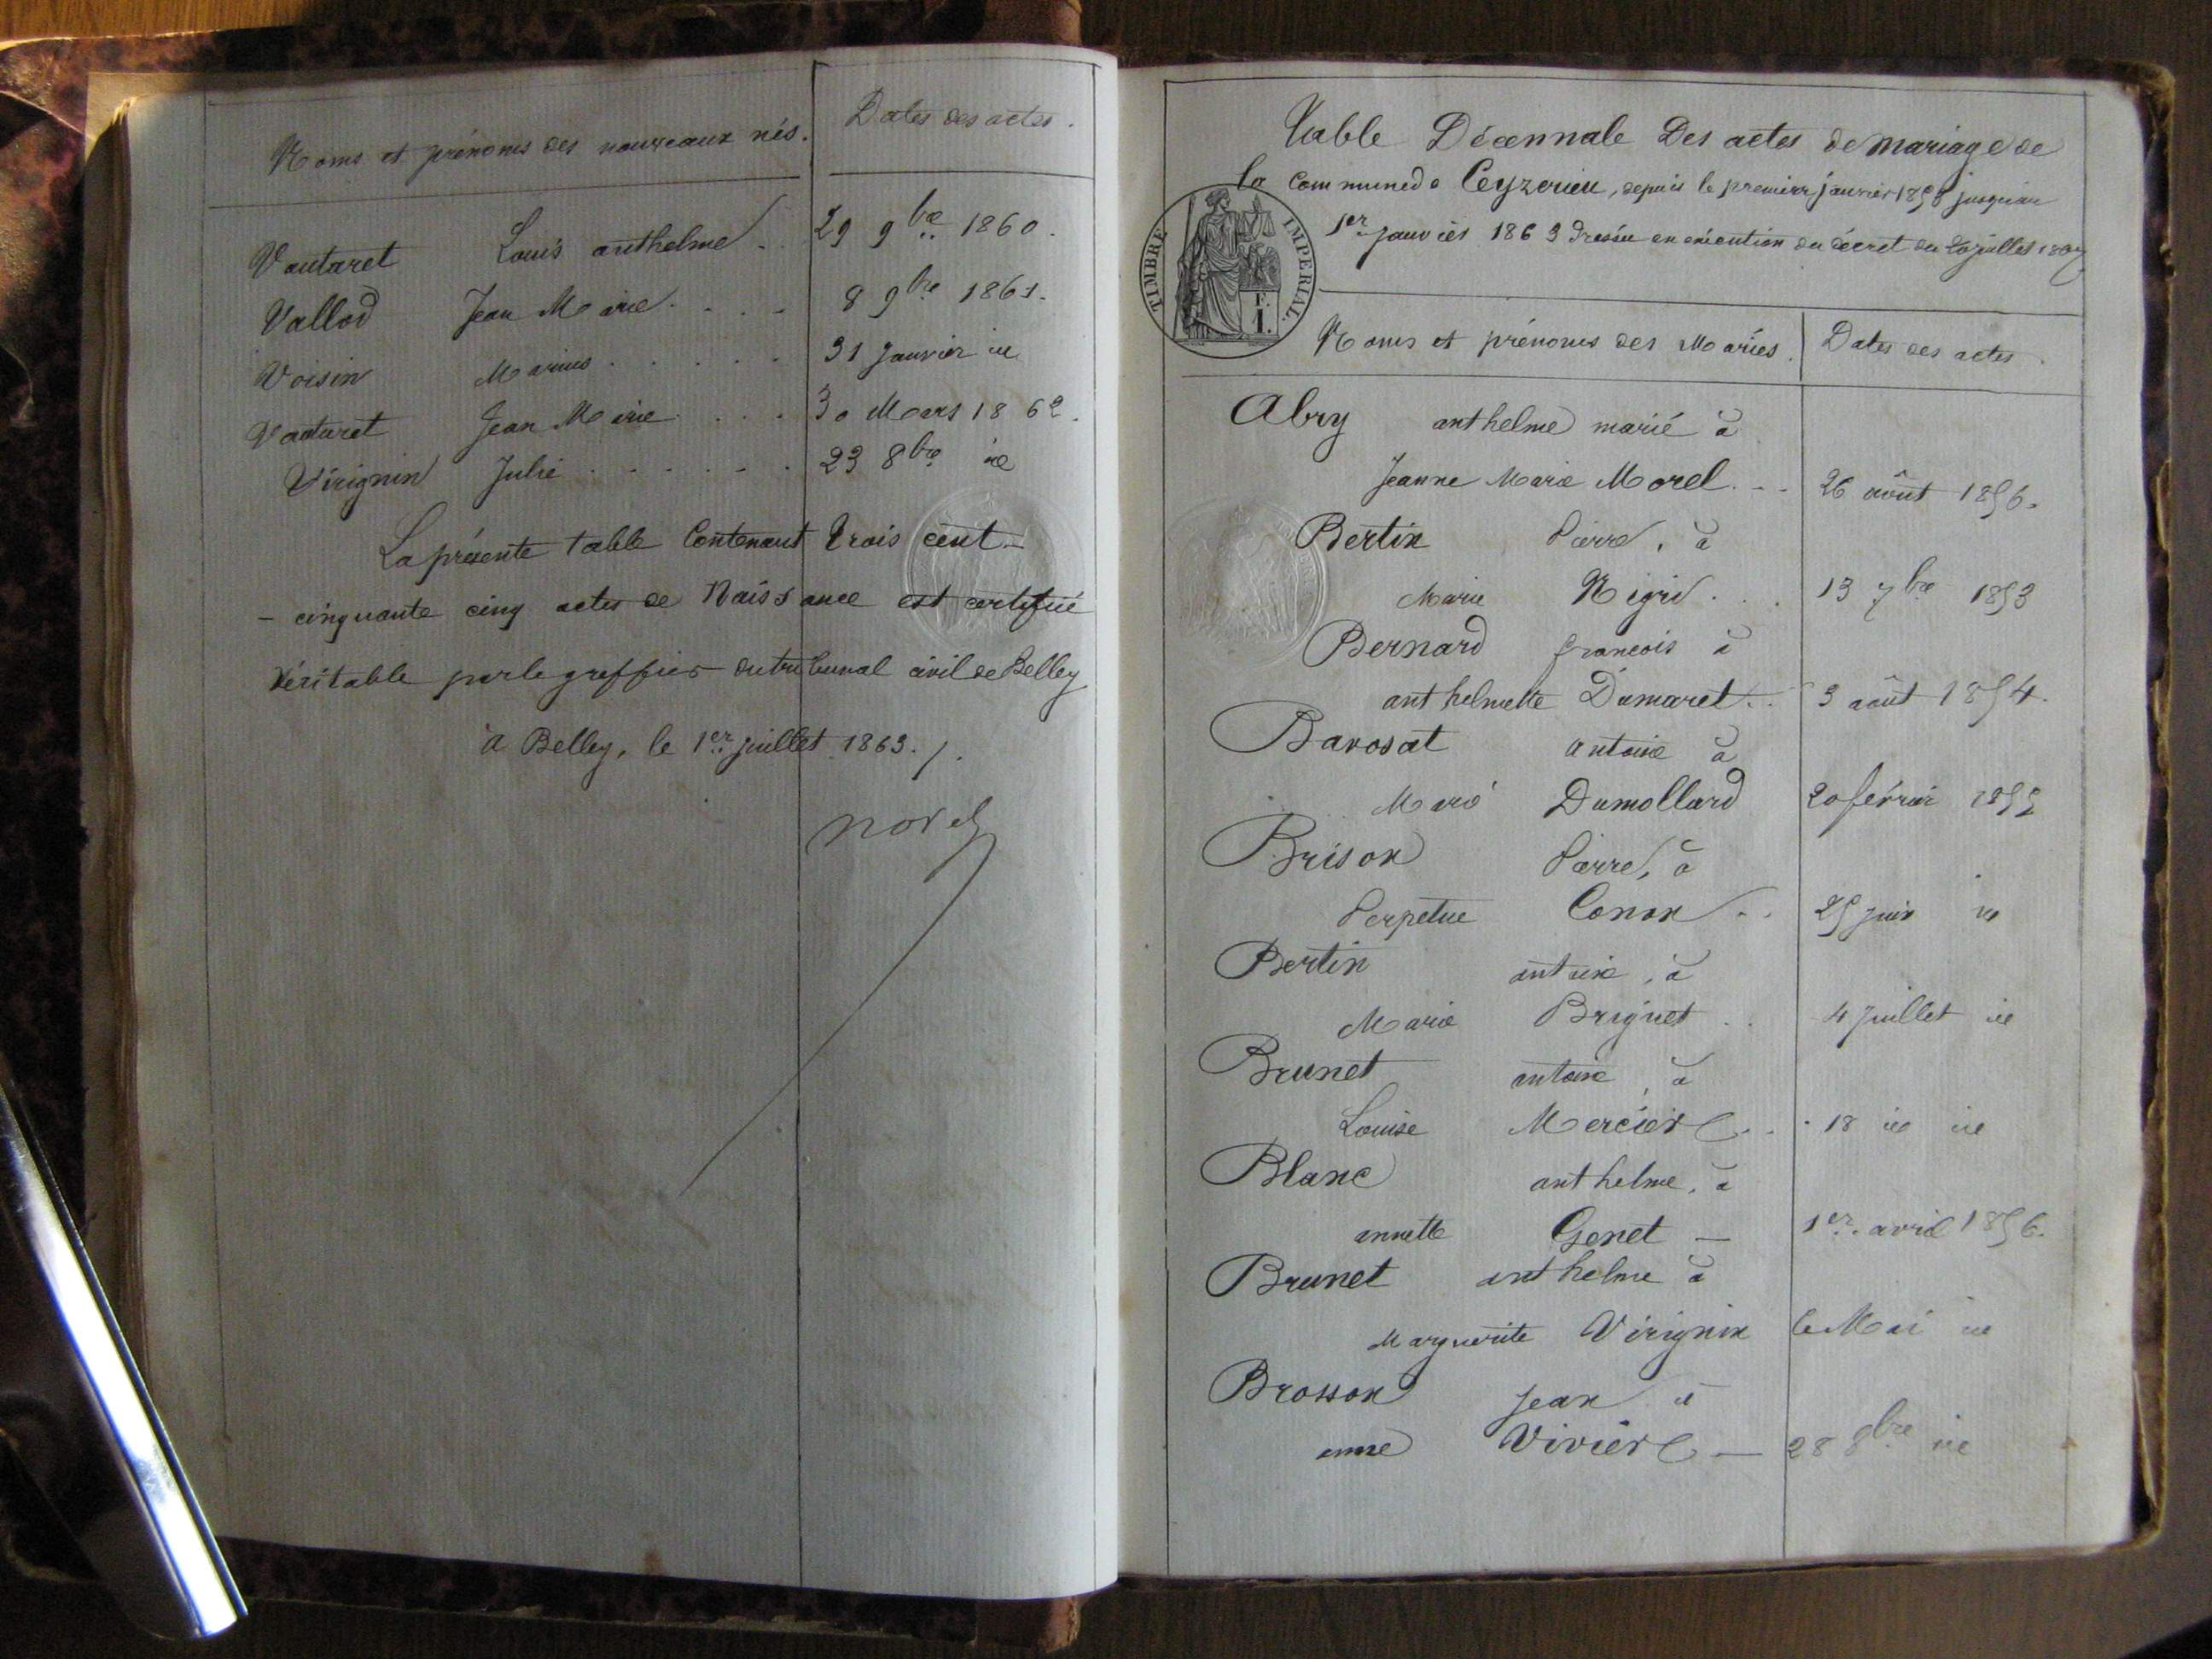 Noms et prénoms des nouveaux nés.
Dates des actes.
Vautaret Louis anthelme. 29 9bre 1860.
Vallod Jean Marie. . . . 8 9bre 1861.
Voisin Marius . . . . . 31 Janvier id
Vautaret Jean Marie . . . 30 Mars 1862.
Virignin Julie . . . . . . 23 8bre id
La présente table Contenant trois cent
- cinquante cinq actes de Naissance est certifié
Véritable par le greffier du tribunal civil de Belley
a Belley, le 1er juillet 1863.
Table Décennale Des actes de mariage de
la Commune de Ceyzerieu, depuis le premier janvier 1853 jusqu'au
1er janvier 1863 Dressée en exécution du décret du 20 juillet 1807
TIMBRE IMPERIAL.
F.
1.
Noms et prénoms des Mariés. Dates des actes.
Abry anthelme marié à
Jeanne Marie Morel. . . 26 août 1856.
Bertin Pierre, à
Marie Nigri . . . 13 7bre 1853
Bernard francois à
anthelmette Dumaret . . 3 août 1854.
Barosat antoine à
Marie Dumollard 20 février 1855
Brison Pierre, à
Perpetue Conon . . 25 juin id
Bertin antoine, à
Marie Briguet . . 4 Juillet id
Brunet antoine, à
Louise Mercier . . 18 id id
Blanc anthelme, à
annette Genet — 1er avril 1856.
Brunet anthelme à
Marguerite Virignin 6 Mai id
Brosson Jean à
anne Vivier — 28 8bre id